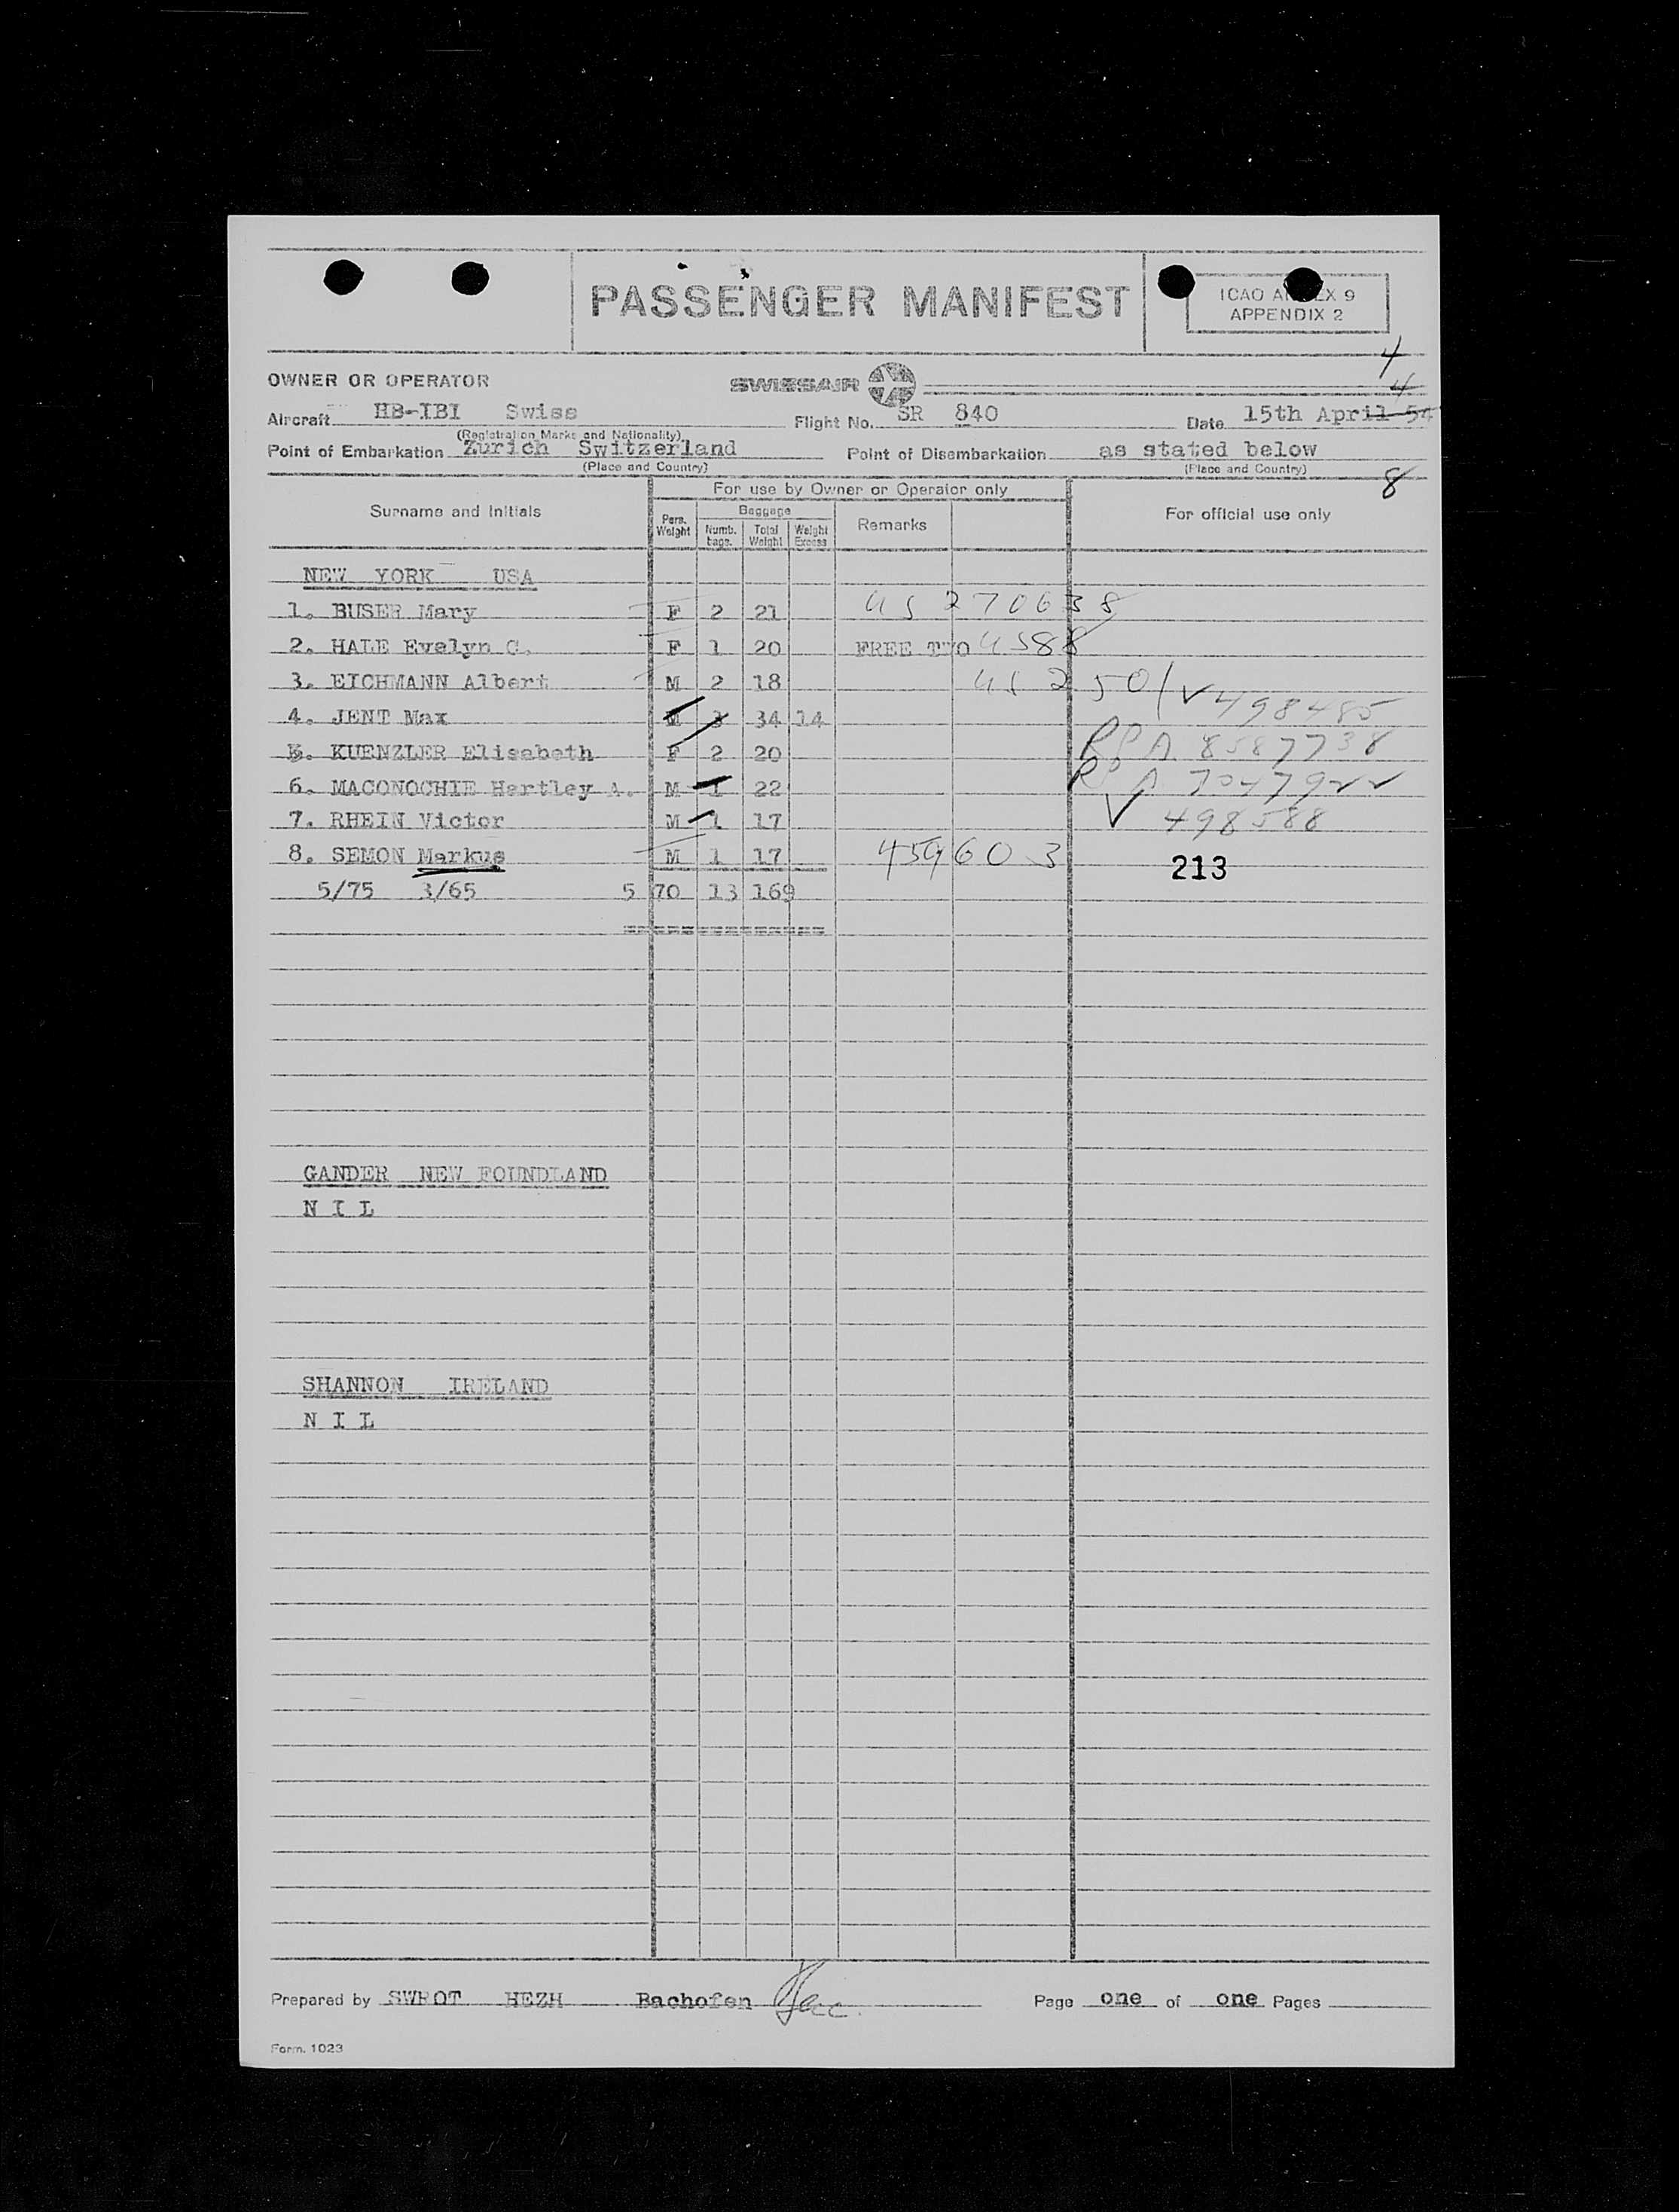 PASSENGER MANIFEST
ICAO ANNEX 9
APPENDIX 2
4
OWNER OR OPERATOR SWISSAIR
4
Aircraft HB-IBI Swiss Flight No. SR 840 Date 15th April 54
(Registration Marks and Nationality)
Point of Embarkation Zurich Switzerland Point of Disembarkation as stated below
(Place and Country) (Place and Country)
8
For use by Owner or Operator only
Surname and Initials Pers. Weight Baggage Numb. bags. Total Weight Weight Excess Remarks For official use only
NEW YORK USA
1. BUSER Mary F 2 21 US 270638
2. HALE Evelyn G. F 1 20 FREE TWO US88
3. EICHMANN Albert M 2 18 US 2501
4. JENT Max M 3 34 14 V 498485
5. KUENZLER Elisabeth F 2 20 RPA 8587738
6. MACONOCHIE Hartley A. M 1 22 RPA
7. RHEIN Victor M 1 17 V 498588
8. SEMON Markus M 1 17 459603
213
5/75 3/65 5 70 13 169
GANDER NEW FOUNDLAND
N I L
SHANNON IRELAND
N I L
Prepared by SWROT HEZH Bachofen Page one of one Pages
Form. 1023